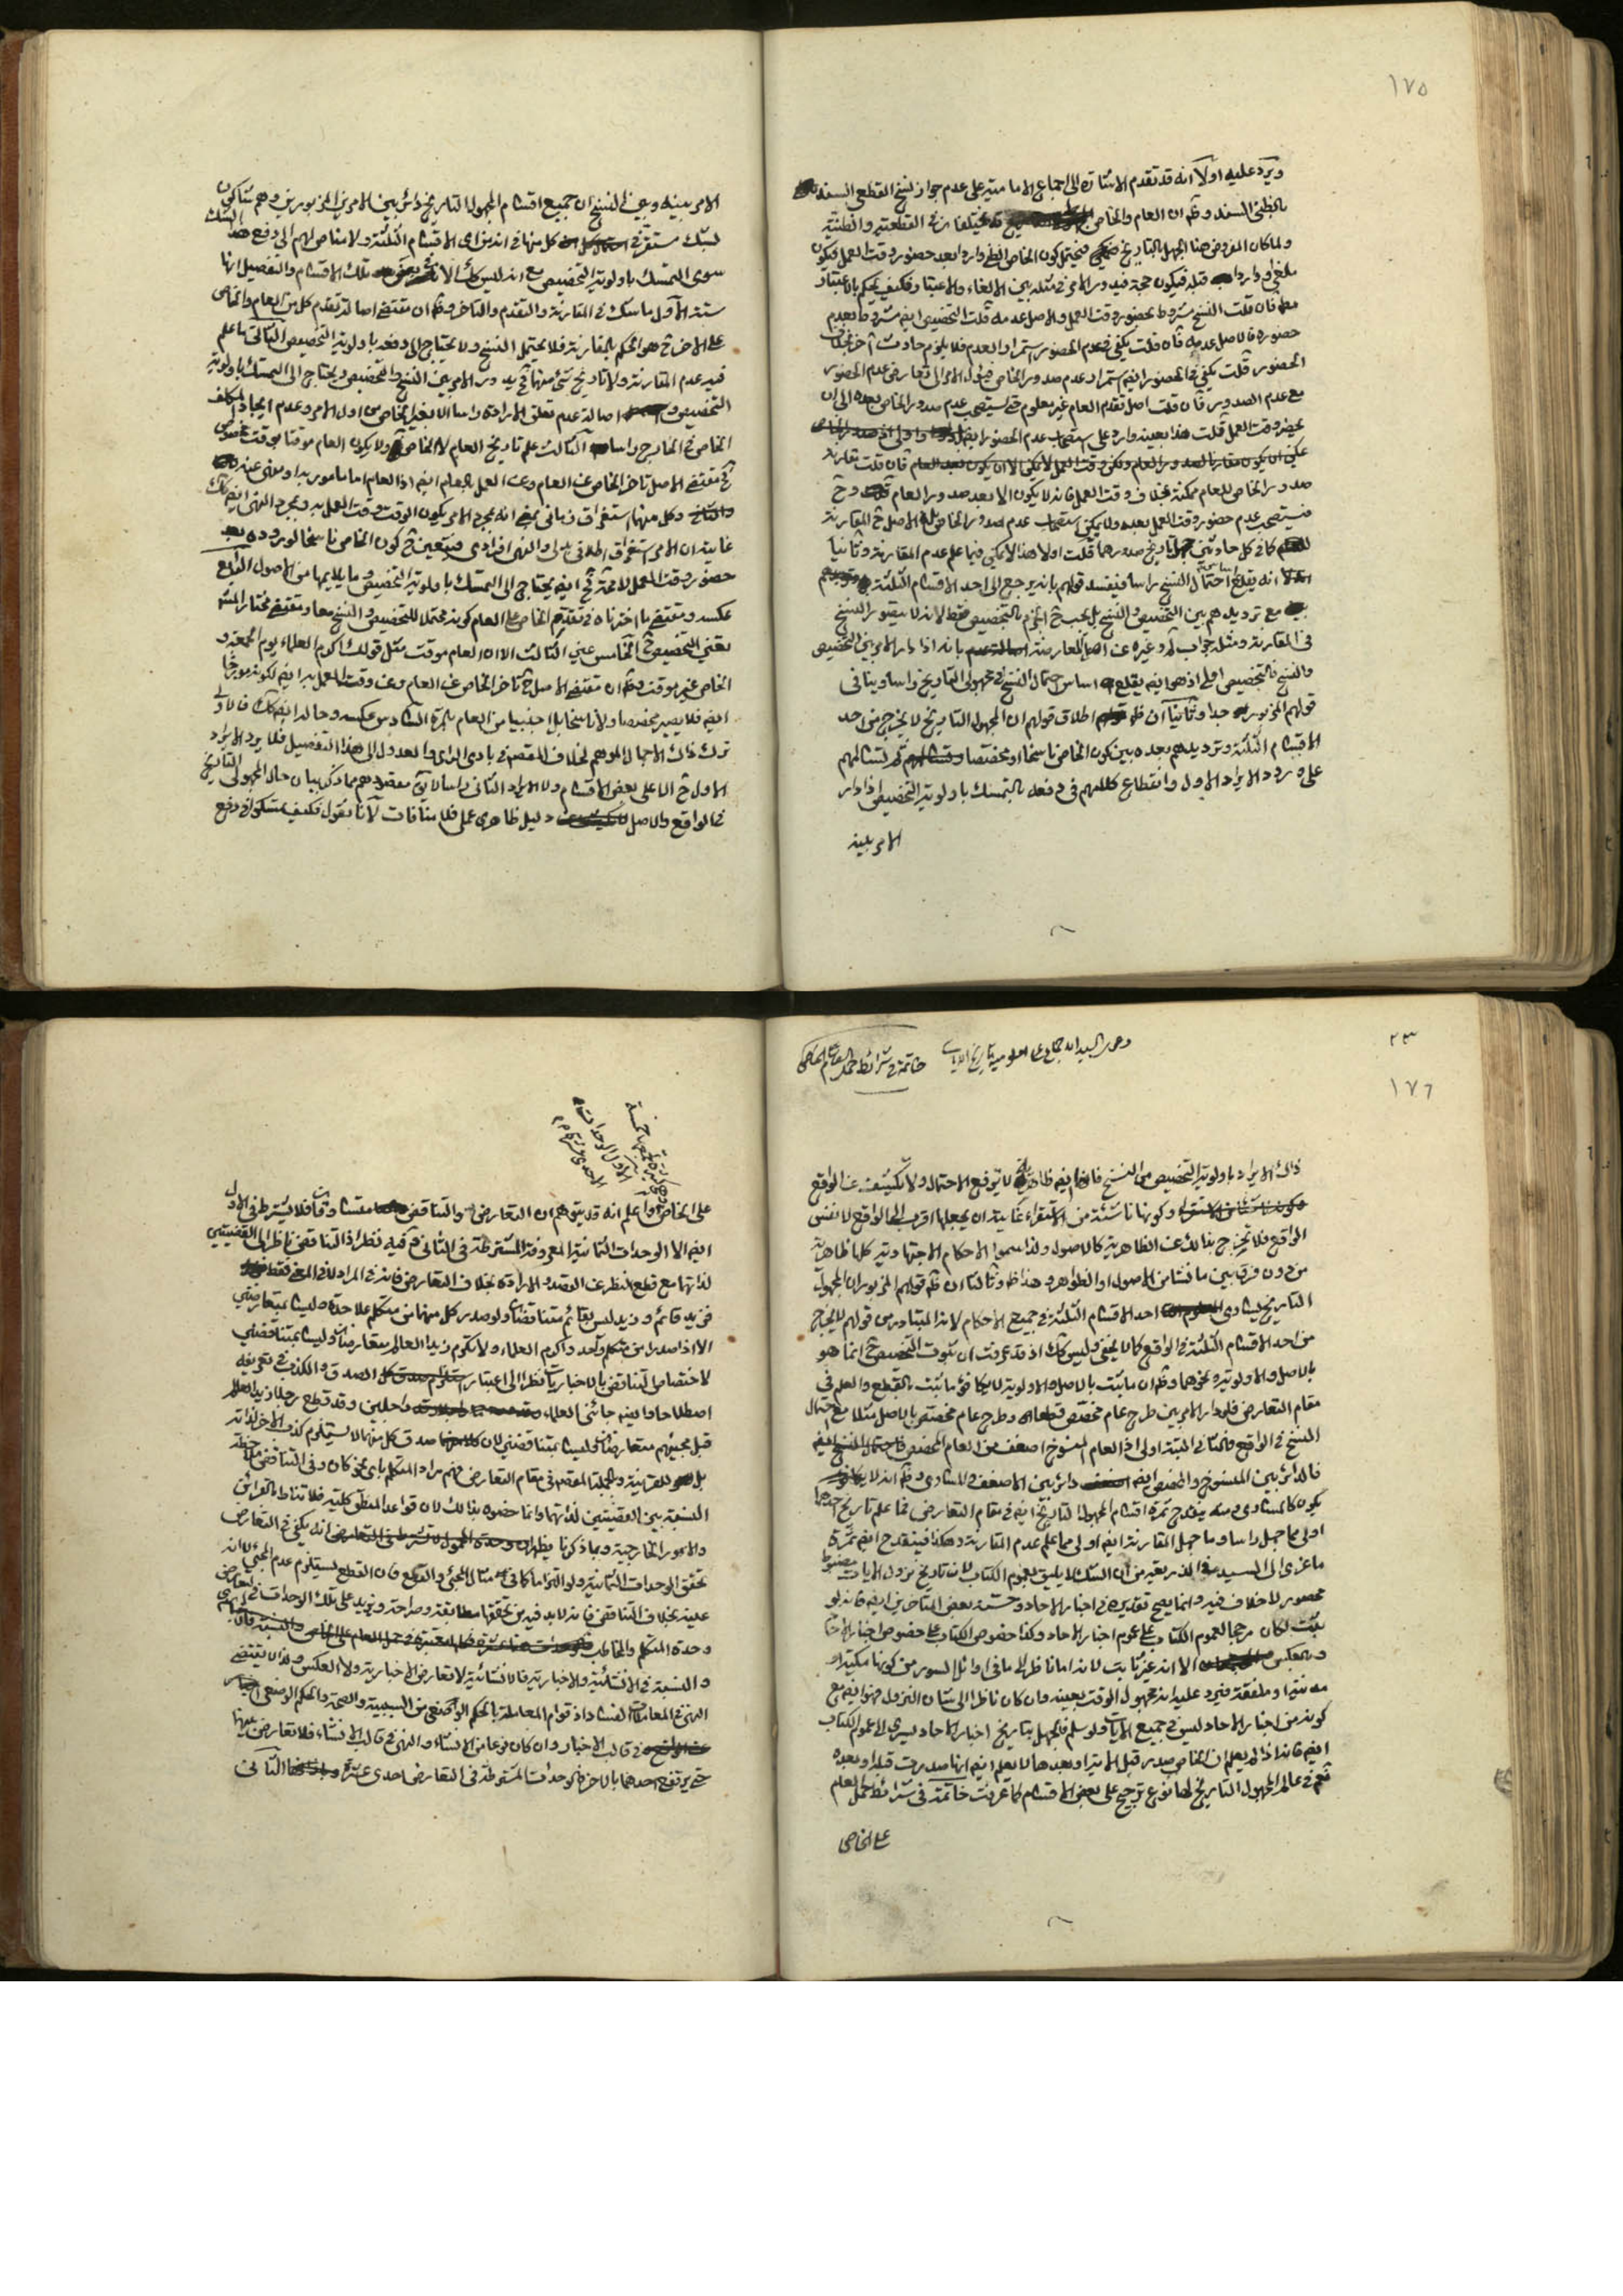 ١٧٥
ويرد عليه اولا انه قد تقدم الاشارة الى اجماع الامامية على عدم جواز نسخ القطعي السند
بالظني السند وظ ان العام والخاص مختلفان في القطعية والظنية
ولما كان المفروض هنا الجهل بالتاريخ فيحتمل كون الخاص الظني واردا بعد حضور وقت العمل فيكون
ملغى او واردا قبله فيكون حجة فيدور الامر في مثله بين الالغاء والاعتبار فكيف يحكم بالاعتبار
معه فان قلت النسخ مشروط بحضور وقت العمل والاصل عدمه قلت التخصيص ايضا مشروط بعدم
حضوره فالاصل عدمه فان قلت يكفي في عدم الحضور استمرار العدم فلا يلزم حادث آخر بخلاف
الحضور قلت يكفي في الحضور ايضا استمرار عدم صدور الخاص فيؤل الامر الى تعارض عدم الحضور
مع عدم الصدور فان قلت اصل تقدم العام غير معلوم حتى يستصحب عدم صدور الخاص بعده الى ان
يحضر وقت العمل قلت هذا بعينه وارد على استصحاب عدم الحضور ايضا
فان قلت مقارنة
صدور الخاص للعام ممكنة بخلاف وقت العمل فانه لا يكون الا بعد صدور العام وح
فيستصحب عدم حضور وقت العمل بعده ولا يمكن استصحاب عدم صدور الخاص بل الاصل ح المقارنة
كما في كل حادثتين جهل تاريخ صدورهما قلت اولا هذا لا يمكن فيما علم عدم المقارنة وثانيا
انه يقلع احتمال النسخ راسا فيفسد قولهم بانه يرجع الى احد الاقسام الثلثة
مع ترديدهم بين التخصيص والنسخ بل يجب ح الجزم بالتخصيص فقط لانه لا يتصور النسخ
في المقارنة ومثله جواب لم وغيره عن اصل المعارضة بانه اذا دار الامر بين التخصيص
والنسخ فالتخصيص اولى اذ هو ايضا يقلع اساس احتمال النسخ في مجهول التاريخ راسا وينافي
قولهم المزبور جدا وثانيا ان ظ اطلاق قولهم ان المجهول التاريخ لا يخرج من احد
الاقسام الثلثة وترديدهم بعده بين كون الخاص ناسخا او مخصصا ثم تسالمهم
على ورود الايراد الاول وانقطاع كلامهم في دفعه بالتمسك باولوية التخصيص اذا دار
الامر بينه
الامر بينه وبين النسخ ان جميع اقسام المجهول التاريخ دائر بين الامرين المزبورين وهم شاكون
بشك مستقر في كل منها في انه من اي الاقسام الثلثة ولا مناص لهم الى دفع هذا الشك
سوى التمسك باولوية التخصيص مع انه ليس كك تلك الاقسام والتفصيل انها
ستة الاول ما شك في المقارنة والتقدم والتاخر وظ ان مقتضى اصالة تقدم كل من العام والخاص
على الاخر ح هو الحكم بالمقارنة فلا يحتمل النسخ ولا يحتاج الى دفعه باولوية التخصيص الثاني ما علم
فيه عدم المقارنة ولا تاريخ شئ منهما فح يدور الامر بين النسخ والتخصيص ويحتاج الى التمسك باولوية
التخصيص اصالة عدم تعلق الارادة راسا الا بغير الخاص من اول الامر وعدم ايجاد المكلف
الخاص في الخارج راسا الثالث علم تاريخ العام لا الخاص ولا يكون العام موقتا بوقت مخصوص
فح مقتضى الاصل تاخر الخاص عن العام وعن العمل بالعام ايضا اذ العام اما مامور به او منهي عنه
وكل منهما استغراق زماني بمعنى انه بمجرد الامر يكون الوقت وقت العمل به وبمجرد النهي ايضا كك
غايته ان الامر استغراق اطلاقي بدلي والنهي افرادي فيتعين ح كون الخاص ناسخا لوروده بعد
حضور وقت العمل لا محة فح ايضا يحتاج الى التمسك باولوية التخصيص وما يلايمها من الاصول الرابع
عكسه ومقتضى ما اخترناه في تقدم الخاص على العام كونه محتملا للتخصيص والنسخ معا ومقتضى مختار المش
تعين التخصيص ح الخامس عين الثالث الا ان العام موقت مثل قولك اكرم العلماء يوم الجمعة و
الخاص غير موقت وظ ان مقتضى الاصل ح تاخر الخاص عن العام وعن وقت العمل به ايضا لكونه مؤخرا
ايضا فلا يصير مخصصا ولا ناسخا بل اجنبيا من العام بالمرة السادس عكسه وحاله ايضا كك فالاولى
ترك ذلك الاجمال الموهم لخلاف المقصود في بادي الراي والعدول الى هذا التفصيل فلا يرد الايراد
الاول ح الا على بعض الاقسام ولا الايراد الثاني راسا لا يق مقصودهم مما ذكر بيان حال المجهول التاريخ
في الواقع والاصل دليل ظاهري عملي فلا منافات لانا نقول فكيف يتمسكون في دفع
٢٣
١٧٦
خاتمة في شرائط حمل العام على الخاص
ذلك الايراد باولوية التخصيص من النسخ فانها ايضا ظاهرية لا ترفع الاحتمال ولا تكشف عن الواقع
وكونها ناشئة من الاستقراء غايته ان يجعلها اقرب الى الواقع لا نفس
الواقع فلا تخرج بذلك عن الظاهرية كالاصول ولذا سموا الاحكام الاجتهادية كلها ظاهرية
من دون فرق بين ما نشا من الاصول او الظواهر وهذا ظ وثالثا ان ظ قولهم المزبور ان المجهول
التاريخ يساوي احد الاقسام الثلثة في جميع الاحكام لانه المتبادر من قولهم لا يخرج
من احد الاقسام الثلثة في الواقع كما لا يخفى وليس كك اذ قد عرفت ان ثبوت التخصيص ح انما هو
بالاصل والاولوية ونحوهما وظ ان ما يثبت بالاصل والاولوية لا يكافؤ ما يثبت بالقطع والعلم في
مقام التعارض فلو دار الامر بين طرح عام مخصص قطعا وطرح عام مخصص بالاصل مثلا مع احتمال
النسخ في الواقع فالثاني البتة اولى اذ العام المنسوخ اضعف من العام المخصص
فالدائر بين المنسوخ والمخصص ايضا دائر بين الاضعف والمساوي وظ انه لا
يكون كالمساوي ومنه ينقدح ثمرة اقسام المجهول التاريخ ايضا في مقام التعارض فما علم تاريخ احدهما
اولى مما جهل راسا وما جهل المقارنة ايضا اولى مما علم عدم المقارنة وهكذا فينقدح ايضا ثمرة
ما عزي الى السيد في الذريعة من ان الشك لا يليق بعموم الكتاب لان تاريخ نزول الايات مضبوط
محصور لا خلاف فيه وانما يصح تقديره في اخبار الاحاد وحسنه بعض المتاخرين ايضا فانه لو
ثبت لكان مرجحا لعموم الكتاب على عموم اخبار الاحاد وكذا خصوص الكتاب على خصوص اخبار الاحاد
وبالعكس الا انه غير ثابت لانه اما ناظر الى ما في اوائل السور من كونها مكية او
مدنية او ملفقة فيرد عليه انه مجهول الوقت بعينه وان كان ناظرا الى شان النزول فهو ايضا مع
كونه من اخبار الاحاد ليس في جميع الايات ولو سلم فالجهل بتاريخ اخبار الاحاد يسري الى عموم الكتاب
ايضا فانه اذا لم يعلم ان الخاص صدر قبل الاية او بعدها لا يعلم ايضا انها صدرت قبله او بعده
نعم في عالم المجهول التاريخ لها نوع ترجيح على بعض الاقسام كما عرفت خاتمة في شرائط حمل العام
على الخاص
على الخاص واعلم انه قد يتوهم ان التعارض والتناقض متساوقان فلا يشترط في الاول
ايضا الا الوحدات الثمانية المعروفة المشترطة في الثاني وفيه نظر اذ التناقض ناظر الى القضيتين
لذاتهما مع قطع النظر عن القصد والارادة بخلاف التعارض فانه في المراد لا في المعنى فقط
فزيد قائم وزيد ليس بقائم متناقضان ولو صدر كل منهما من متكلم علاحدة وليسا بمتعارضين
الا اذا صدرا من متكلم واحد واكرم العلماء ولا تكرم زيدا العالم متعارضان وليسا بمتناقضين
لاختصاص التناقض بالاخباريات نظرا الى اعتبار الصدق والكذب في تعريفه
اصطلاحا وايضا جائني العلماء راجلين وقد قطع رجلا زيد العالم
قبل مجيئهم متعارضان وليسا بمتناقضين لان صدق كل منهما لا يستلزم كذب الاخر لذاته
بل للقرينة وبالجملة المقصود في مقام التعارض فهم مراد المتكلم باي نحو كان وفي التناقض ملاحظة
النسبة بين القضيتين لذاتهما وانما خصوه بذلك لان قواعد المنطق كلية فلا تناط بالقرائن
والامور الخارجية وبما ذكرنا يظهر انه يكفي في التعارض
تحقق الوحدات الثمانية ولو التزاما كما في مثال المجيء والقطع فان القطع يستلزم عدم المجيء لا انه
عينه بخلاف التناقض فانه لا بد فيه من تحققها مطابقة وصراحة ويزيد على تلك الوحدات في التعارض
وحدة المتكلم والمخاطب
والنسبة في الانشائية والاخبارية فالانشائية لا تعارض الاخبارية ولا العكس ولذا لا يقتضي
النهي في المعاملات الفساد اذ قوام المعاملة بالحكم الوضعي من السببية والصحة والحكم الوضعي اخبار
في قالب الاخبار وان كان نوعا من الانشاء والنهي في قالب الانشاء فلا تعارض بينهما
حتى يرتفع احدهما بالاخر فالوحدات المشروطة في التعارض احدى عشرة الثاني